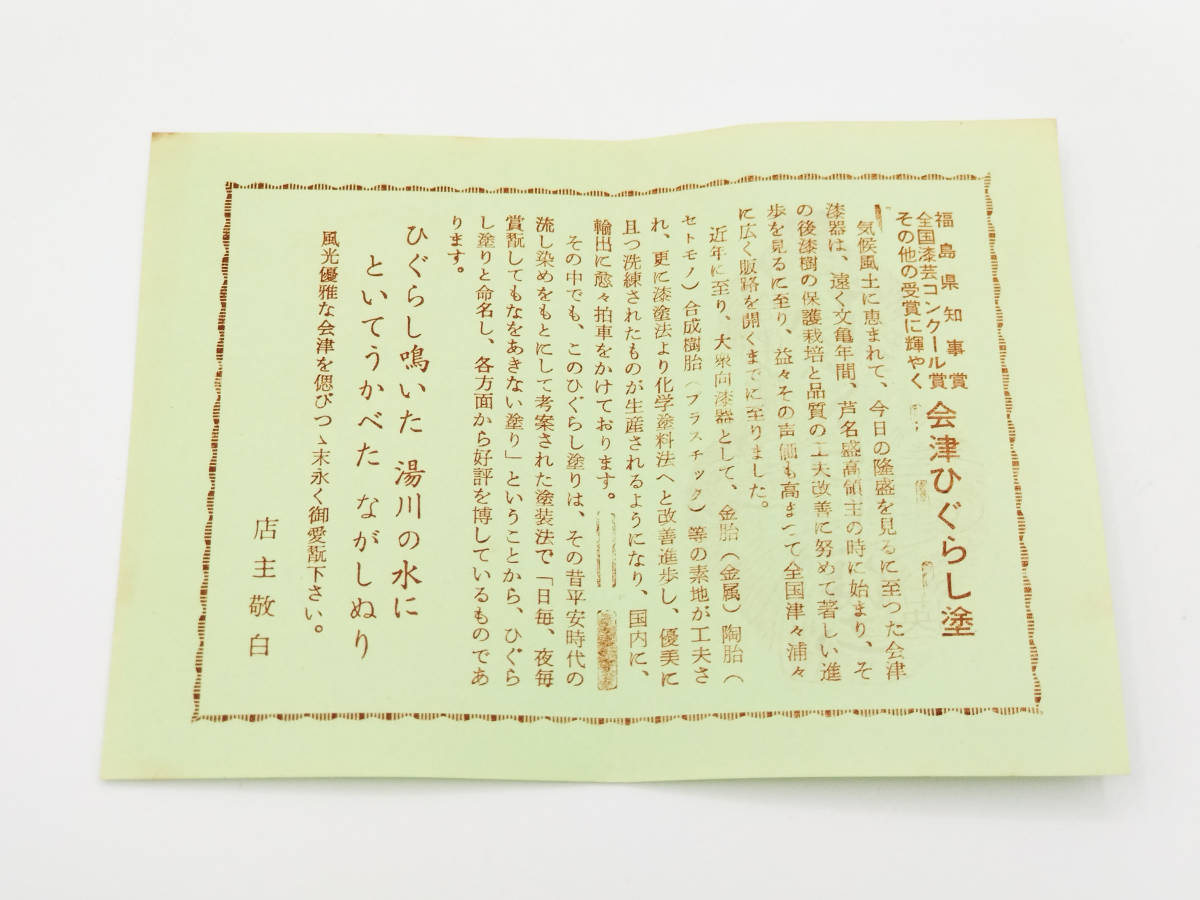 福島県知事賞
全国漆芸コンクール賞
その他の受賞に輝やく
会津ひぐらし塗
気候風土に恵まれて、今日の隆盛を見るに至つた会津
漆器は、遠く文亀年間、芦名盛高領主の時に始まり、そ
の後漆樹の保護栽培と品質の工夫改善に努めて著しい進
歩を見るに至り、益々その声価も高まつて全国津々浦々
に広く販路を開くまでに至りました。
近年に至り、大衆向漆器として、金胎（金属）陶胎（
セトモノ）合成樹胎（プラスチック）等の素地が工夫さ
れ、更に漆塗法より化学塗料法へと改善進歩し、優美に
且つ洗練されたものが生産されるようになり、国内に、
輸出に愈々拍車をかけております。
その中でも、このひぐらし塗りは、その昔平安時代の
流し染めをもとにして考案された塗装法で「日毎、夜毎
賞翫してもなをあきない塗り」ということから、ひぐら
し塗りと命名し、各方面から好評を博しているものであ
ります。
ひぐらし鳴いた 湯川の水に
といてうかべた ながしぬり
風光優雅な会津を偲びつゝ末永く御愛翫下さい。
店主敬白